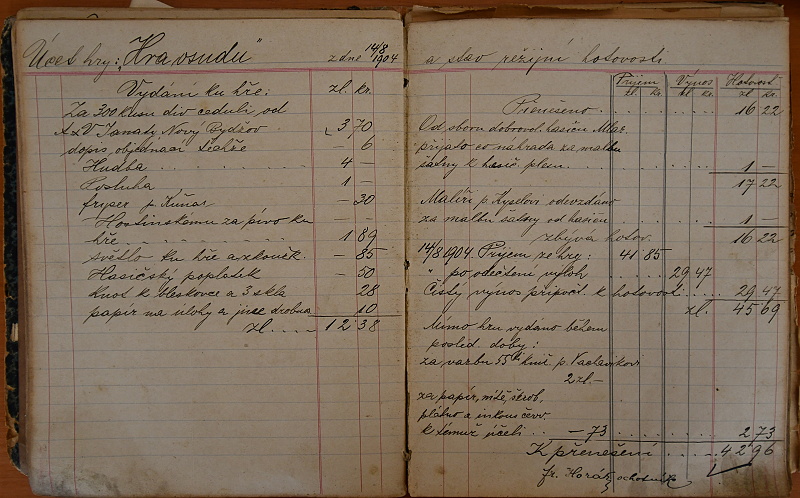 Účet hry: „Hra osudu" z dne 14/8 1904
Vydání ku hře: zl. kr.
Za 300 kusu div cedulí od
A&V Janaty Nový Bydžov 3 70
dopis, objednací – 6
Hudba 4 –
Posluha 1 –
p. Kuňar – 30
Hostinskému za pivo ku – –
hře 1 89
světlo ku hře a zkoušk. – 85
Hasičský poplatek – 50
Knot k bleskovce a 3 skla 28
papír na ulohy a jiné drobna 10
zl. 12 38
a stav režijní hotovosti
Příjem Výnos Hotovost
zl. kr. zl. kr. zl. kr.
Přenešeno 16 22
Od sboru dobrovol. hasičů Mlaz.
přijato co nahrada za malbu
šatny k hasič. plesu 1 –
17 22
Malíři p. Kyselovi odevzdáno
za malbu šatny od hasičů 1 –
zbývá hotov. 16 22
14/8 1904. Příjem ze hry: 41 85
" po odečtení výloh 29 47
Čistý výnos připočt. k hotovost. 29 47
zl. 45 69
Mimo hru vydáno během
posled. doby:
za vazbu 55ti knih. p. Vachavikovi
2 zl. –
za papír, nitě, šerob,
plátno a
k témuž účeli – 73 2 73
K přenešení 42 96
Fr. Horák, ochotník